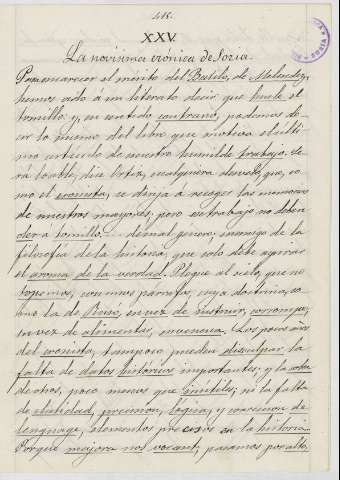 418.
XXV.
La novísima crónica de Soria.
Para encarecer el mérito del Batilo, de Melendez,
hemos oido á un literato decir que huele el
tomillo: y, en sentido contrario, podamos de-
cir lo mismo del libro que motiva el últi-
mo artículo de nuestro humilde trabajo. Se-
rá loable, dice Ortiz, cualquiera desvelo, que, co-
mo el cronista, se dirija á recoger las memorias
de nuestros mayores; pero su trabajo no debe
oler á tomillo de mal género, enemigo de la
filosofía de la historia, que solo debe aspirar
el aroma de la verdad. Plegue al cielo, que no
topemos, con unos párrafos, cuya doctrina, co-
mo la de en vez de nutrir, corrompe;
en vez de alimentar, envenena. Los pocos años
del cronista, tampoco pueden disculpar la
falta de datos históricos importantes; y la
de otros, poco menos que inútiles; ni la falta
de claridad, precision, lógica, y correccion de
lenguage, elementos precisos en la historia.
Porque majora nos vocant, pasamos por alto,